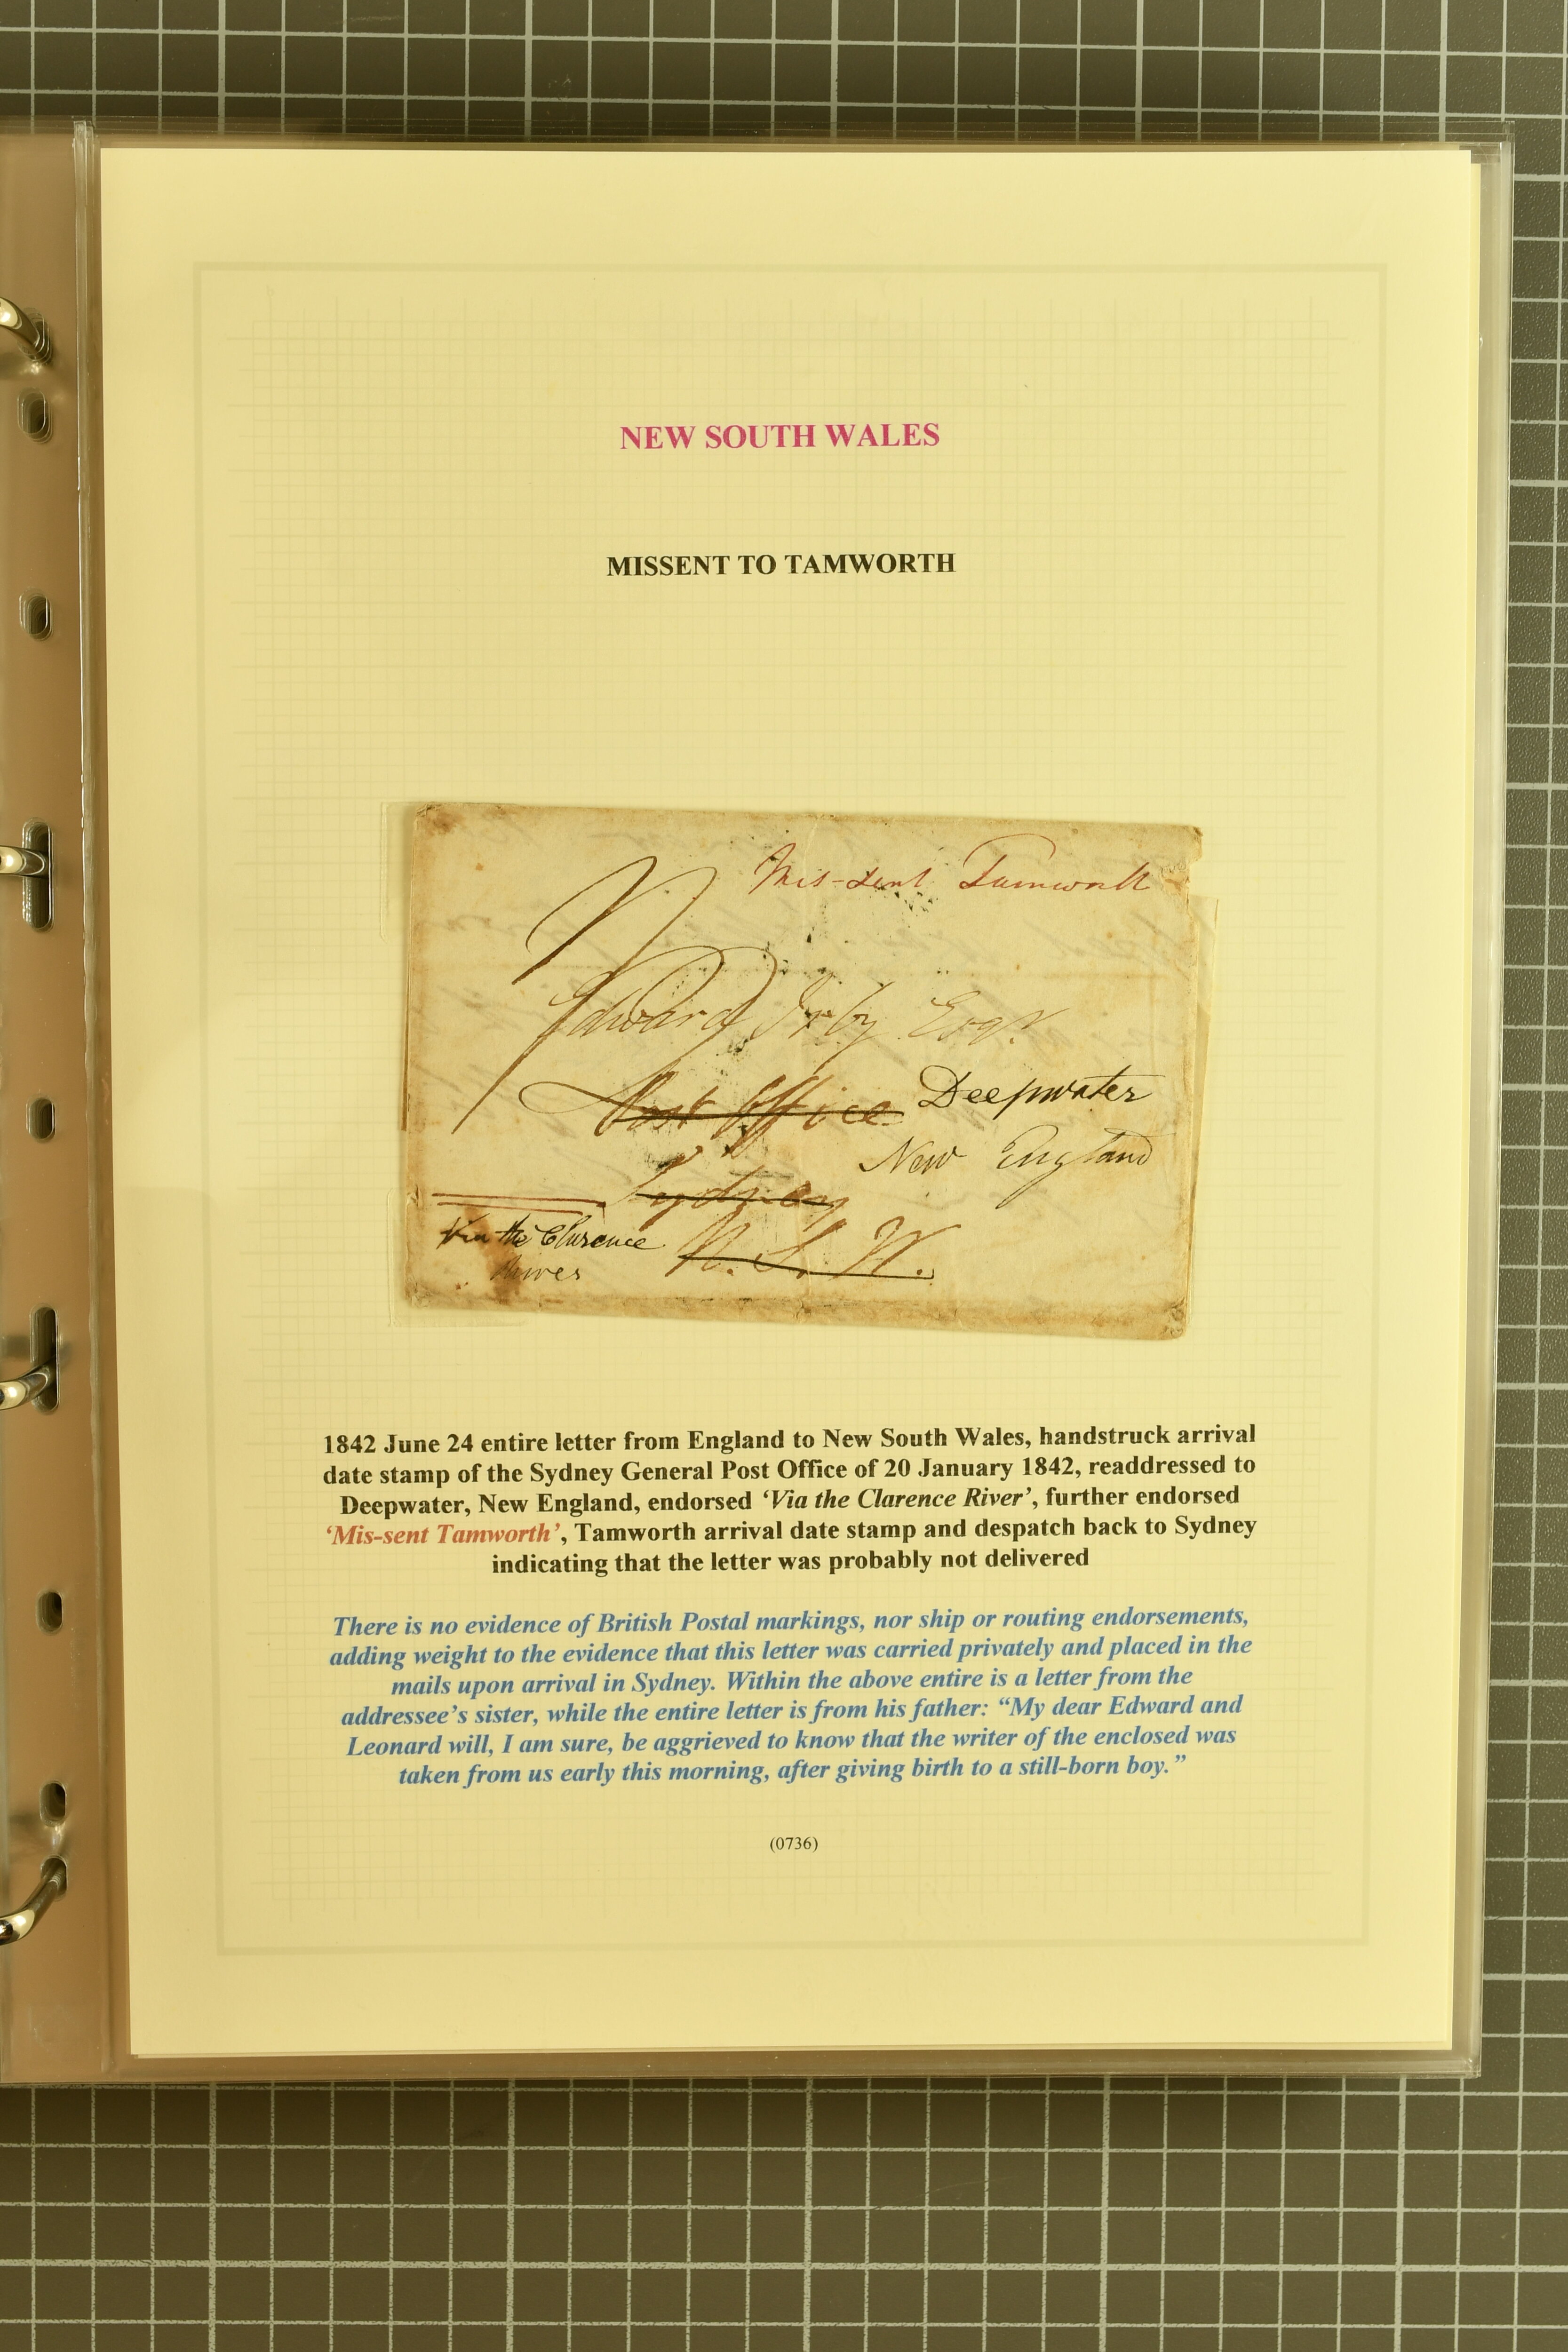 NEW SOUTH WALES
MISSENT TO TAMWORTH
Mis-sent Tamworth
7
Edward Irby Esqr.
Post Office Deepwater
New England
Sydney
Via the Clarence
River
N. S. W.
1842 June 24 entire letter from England to New South Wales, handstruck arrival
date stamp of the Sydney General Post Office of 20 January 1842, readdressed to
Deepwater, New England, endorsed ‘Via the Clarence River’, further endorsed
‘Mis-sent Tamworth’, Tamworth arrival date stamp and despatch back to Sydney
indicating that the letter was probably not delivered
There is no evidence of British Postal markings, nor ship or routing endorsements,
adding weight to the evidence that this letter was carried privately and placed in the
mails upon arrival in Sydney. Within the above entire is a letter from the
addressee’s sister, while the entire letter is from his father: “My dear Edward and
Leonard will, I am sure, be aggrieved to know that the writer of the enclosed was
taken from us early this morning, after giving birth to a still-born boy.”
(0736)